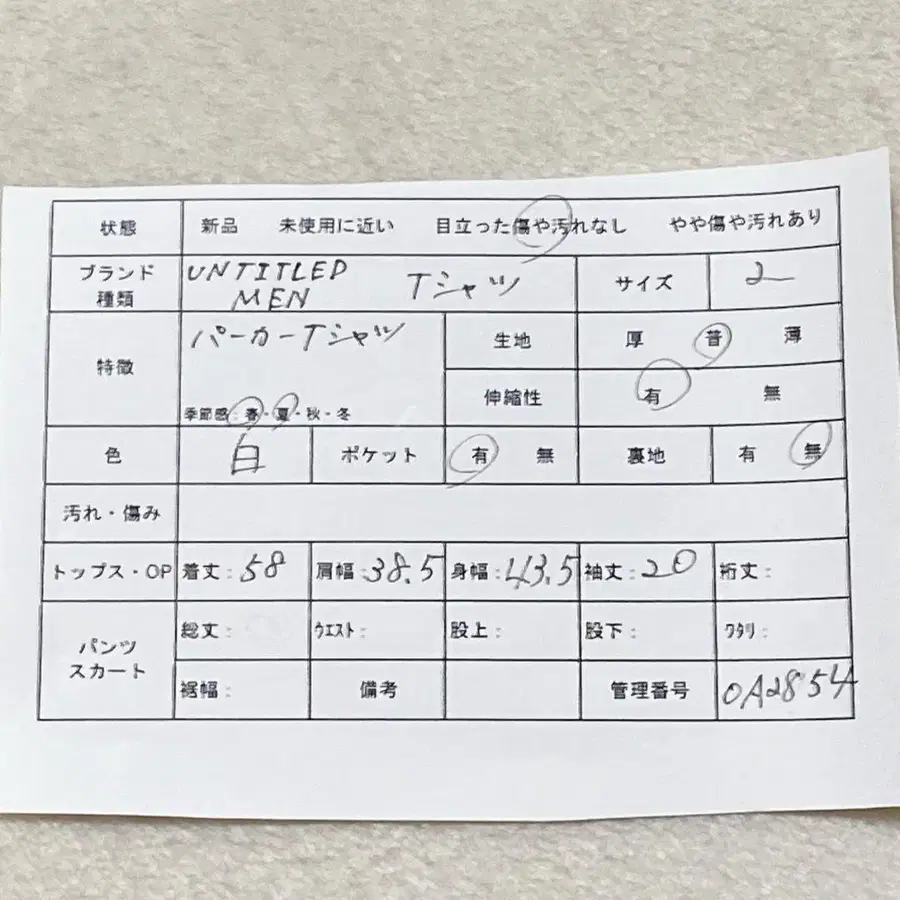 状態 新品 未使用に近い 目立った傷や汚れなし やや傷や汚れあり
ブランド UNTITLED
種類 MEN Tシャツ サイズ 2
特徴 パーカーTシャツ 生地 厚 普 薄
季節感:春・夏・秋・冬 伸縮性 有 無
色 白 ポケット 有 無 裏地 有 無
汚れ・傷み
トップス・OP 着丈:58 肩幅:38.5 身幅:43.5 袖丈:20 裄丈:
パンツ スカート 総丈: ウエスト: 股上: 股下: ワタリ:
裾幅: 備考 管理番号 OA2854